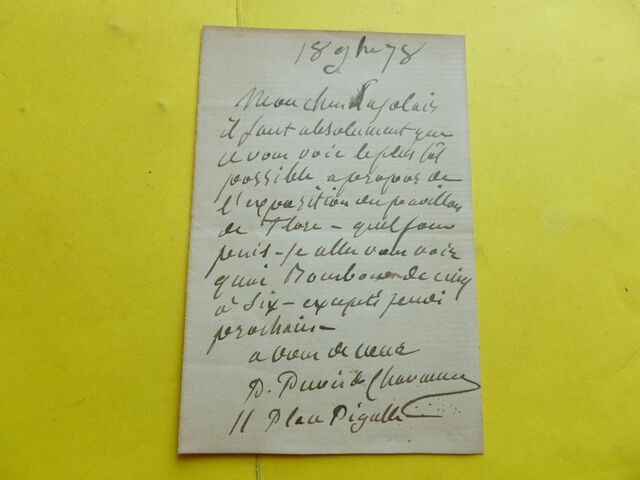 18 9bre 78
Mon cher Lagolais
il faut absolument que
je vous voie le plus tôt
possible a propos de
l'exposition du pavillon
de Flore - quel jour
puis-je aller vous voir
quai Bourbon de cinq
à Six - excepté jeudi
prochain -
a vous de cœur
P. Puvis de Chavannes
11 Place Pigalle